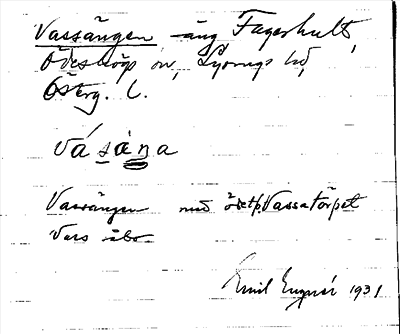 Vassängen äng Fagerhult,
Ödeshögs sn, Lysings hd,
Österg. l.
vásàŋa
Vassängen med ödetp. Vassatorpet
Vars åbo
Emil 1931